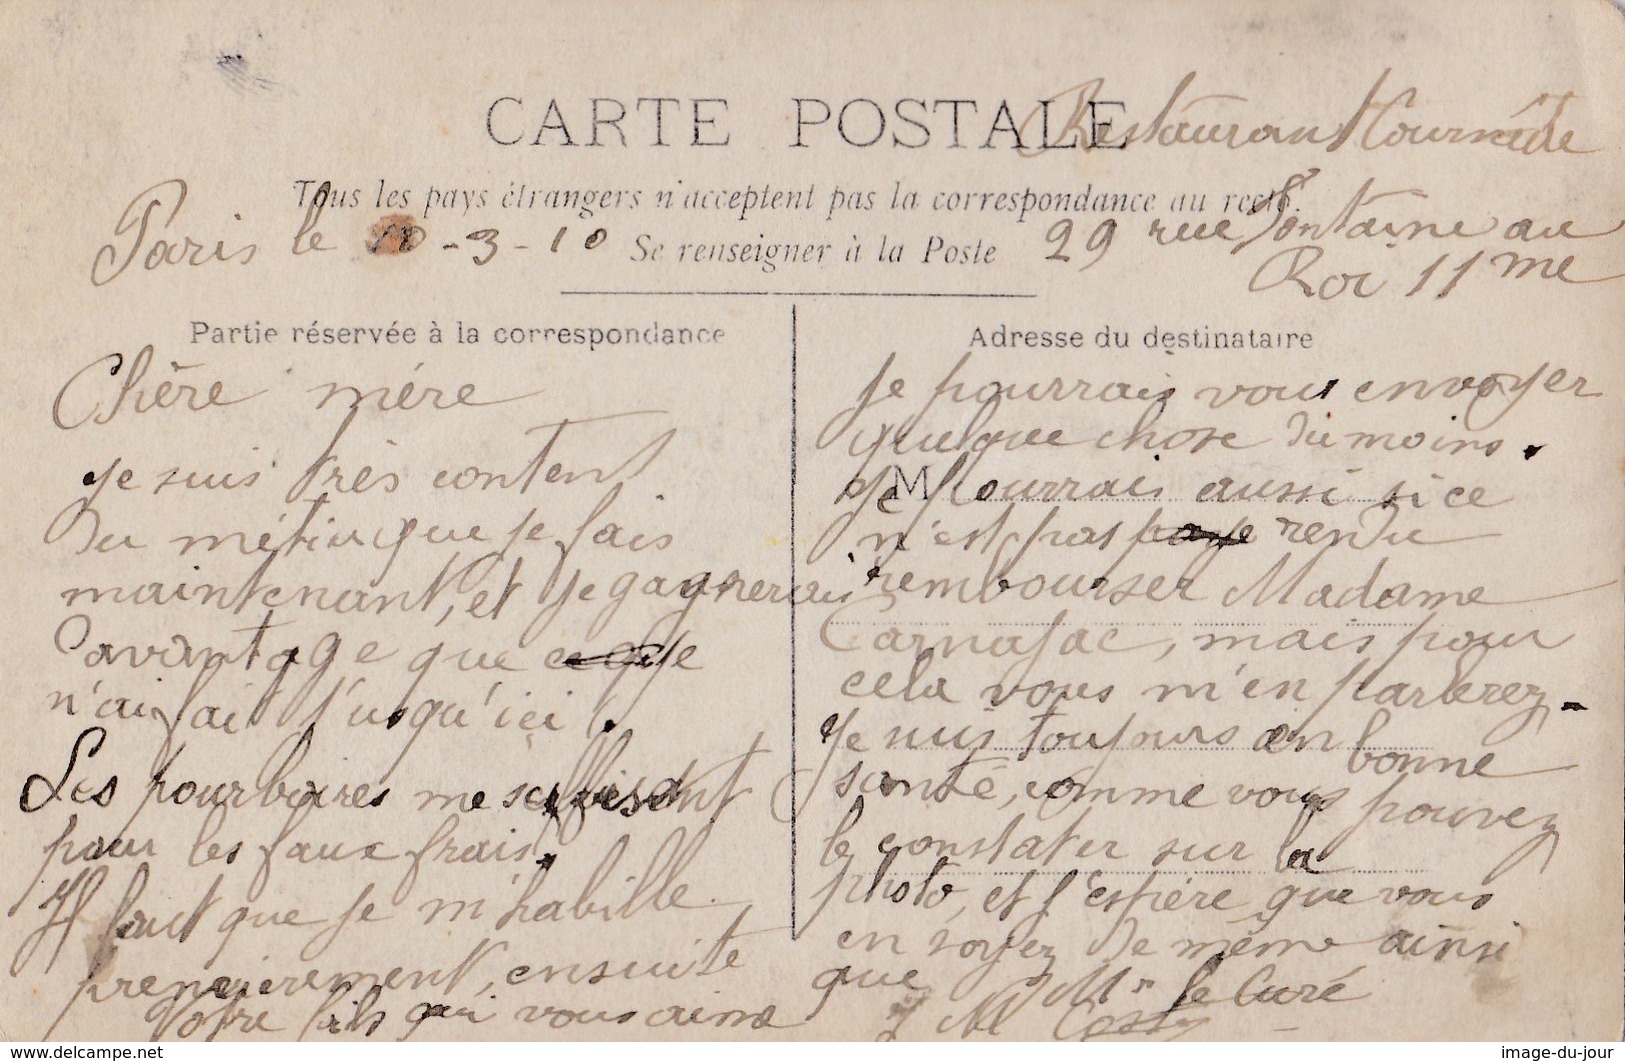 CARTE POSTALE
Restaurant
Tous les pays étrangers n'acceptent pas la correspondance au recto.
Se renseigner à la Poste
Paris le 10-3-10
29 rue Fontaine au
Roi 11me
Partie réservée à la correspondance
Chère mére
Je suis très content
du métier que je fais
maintenant, et je gagnerais
davantage que je
n'ai fait jusqu'ici.
Les pourboires me suffisent
pour les faux frais.
Il faut que je m'habille
premièrement, ensuite
Votre fils qui vous aime
Adresse du destinataire
M
Je pourrais vous envoyer
quelque chose du moins.
Je pourrais aussi si ce
n'est pas rendu
rembourser Madame
mais pour
cela vous m'en parlerez.
Je suis toujours en bonne
santé, comme vous pouvez
le constater sur la
photo, et j'espère que vous
en soyez de même ainsi
que Mr le Curé
image-du-jour
www.delcampe.net
image-du-jour